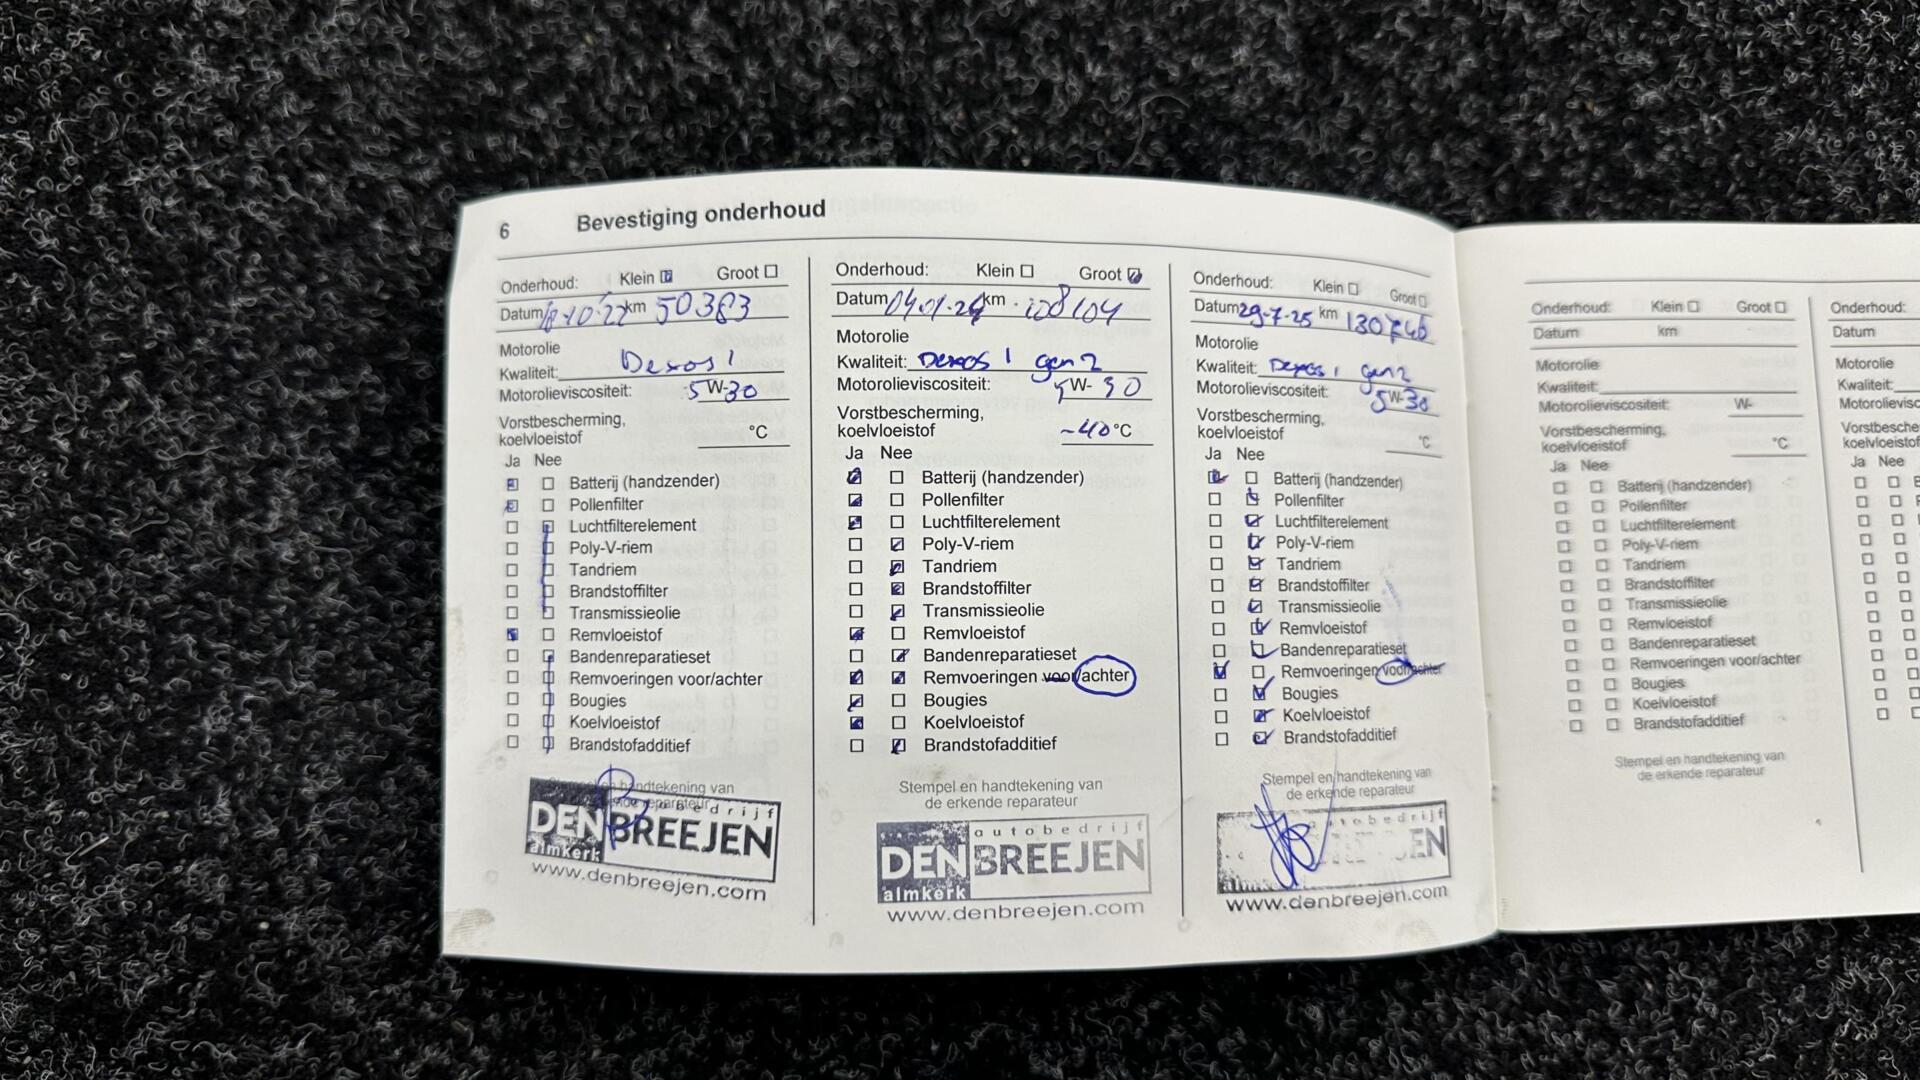 6 Bevestiging onderhoud
Onderhoud: Klein Groot
Datum 18-10-22 km 50383
Motorolie
Kwaliteit: Dexos 1
Motorolieviscositeit: 5W-30
Vorstbescherming,
koelvloeistof °C
Ja Nee
Batterij (handzender)
Pollenfilter
Luchtfilterelement
Poly-V-riem
Tandriem
Brandstoffilter
Transmissieolie
Remvloeistof
Bandenreparatieset
Remvoeringen voor/achter
Bougies
Koelvloeistof
Brandstofadditief
Stempel en handtekening van
reparateur
autobedrijf
DEN BREEJEN
almkerk
www.denbreejen.com
Onderhoud: Klein Groot
Datum 04-01-24 km 108104
Motorolie
Kwaliteit: Dexos 1 gen 2
Motorolieviscositeit: 5W-30
Vorstbescherming,
koelvloeistof -40°C
Ja Nee
Batterij (handzender)
Pollenfilter
Luchtfilterelement
Poly-V-riem
Tandriem
Brandstoffilter
Transmissieolie
Remvloeistof
Bandenreparatieset
Remvoeringen voor/achter
Bougies
Koelvloeistof
Brandstofadditief
Stempel en handtekening van
de erkende reparateur
autobedrijf
DEN BREEJEN
almkerk
www.denbreejen.com
Onderhoud: Klein Groot
Datum 29-7-25 km
Motorolie
Kwaliteit: Dexos 1 gen 2
Motorolieviscositeit: 5W-30
Vorstbescherming,
koelvloeistof °C
Ja Nee
Batterij (handzender)
Pollenfilter
Luchtfilterelement
Poly-V-riem
Tandriem
Brandstoffilter
Transmissieolie
Remvloeistof
Bandenreparatieset
Remvoeringen voor/achter
Bougies
Koelvloeistof
Brandstofadditief
Stempel en handtekening van
de erkende reparateur
autobedrijf
www.denbreejen.com
Onderhoud: Klein Groot
Datum km
Motorolie
Kwaliteit:
Motorolieviscositeit: W-
Vorstbescherming,
koelvloeistof °C
Ja Nee
Batterij (handzender)
Pollenfilter
Luchtfilterelement
Poly-V-riem
Tandriem
Brandstoffilter
Transmissieolie
Remvloeistof
Bandenreparatieset
Remvoeringen voor/achter
Bougies
Koelvloeistof
Brandstofadditief
Stempel en handtekening van
de erkende reparateur
Onderhoud:
Datum
Motorolie
Kwaliteit:
Motorolievisc
Vorstbesche
koelvloeistof
Ja Nee